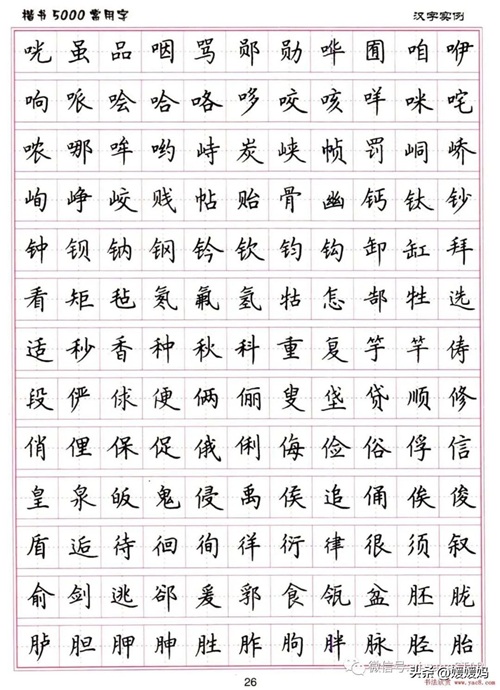 楷书5000常用字 汉字实例
咣虽品咽骂郧勋哗囿咱咿
响哌哙哈咯哆咬咳咩咪咤
哝哪哞哟峙炭峡帧罚峒峤
峋峥峧贱帖贻骨幽钙钛钞
钟钡钠钢钤钦钧钩卸缸拜
看矩毡氡氟氢牯怎郜牲选
适秒香种秋科重复竽竿俦
段俨俅便俩俪叟垡贷顺修
俏俚保促俄俐侮俭俗俘信
皇泉皈鬼侵禹侯追俑俟俊
盾逅待徊徇徉衍律很须叙
俞剑逃郤爰郛食瓴盆胚胧
胪胆胛胂胜胙朐胖脉胫胎
26
微信号
头条@媛媛妈
书法欣赏 www.yac8.com